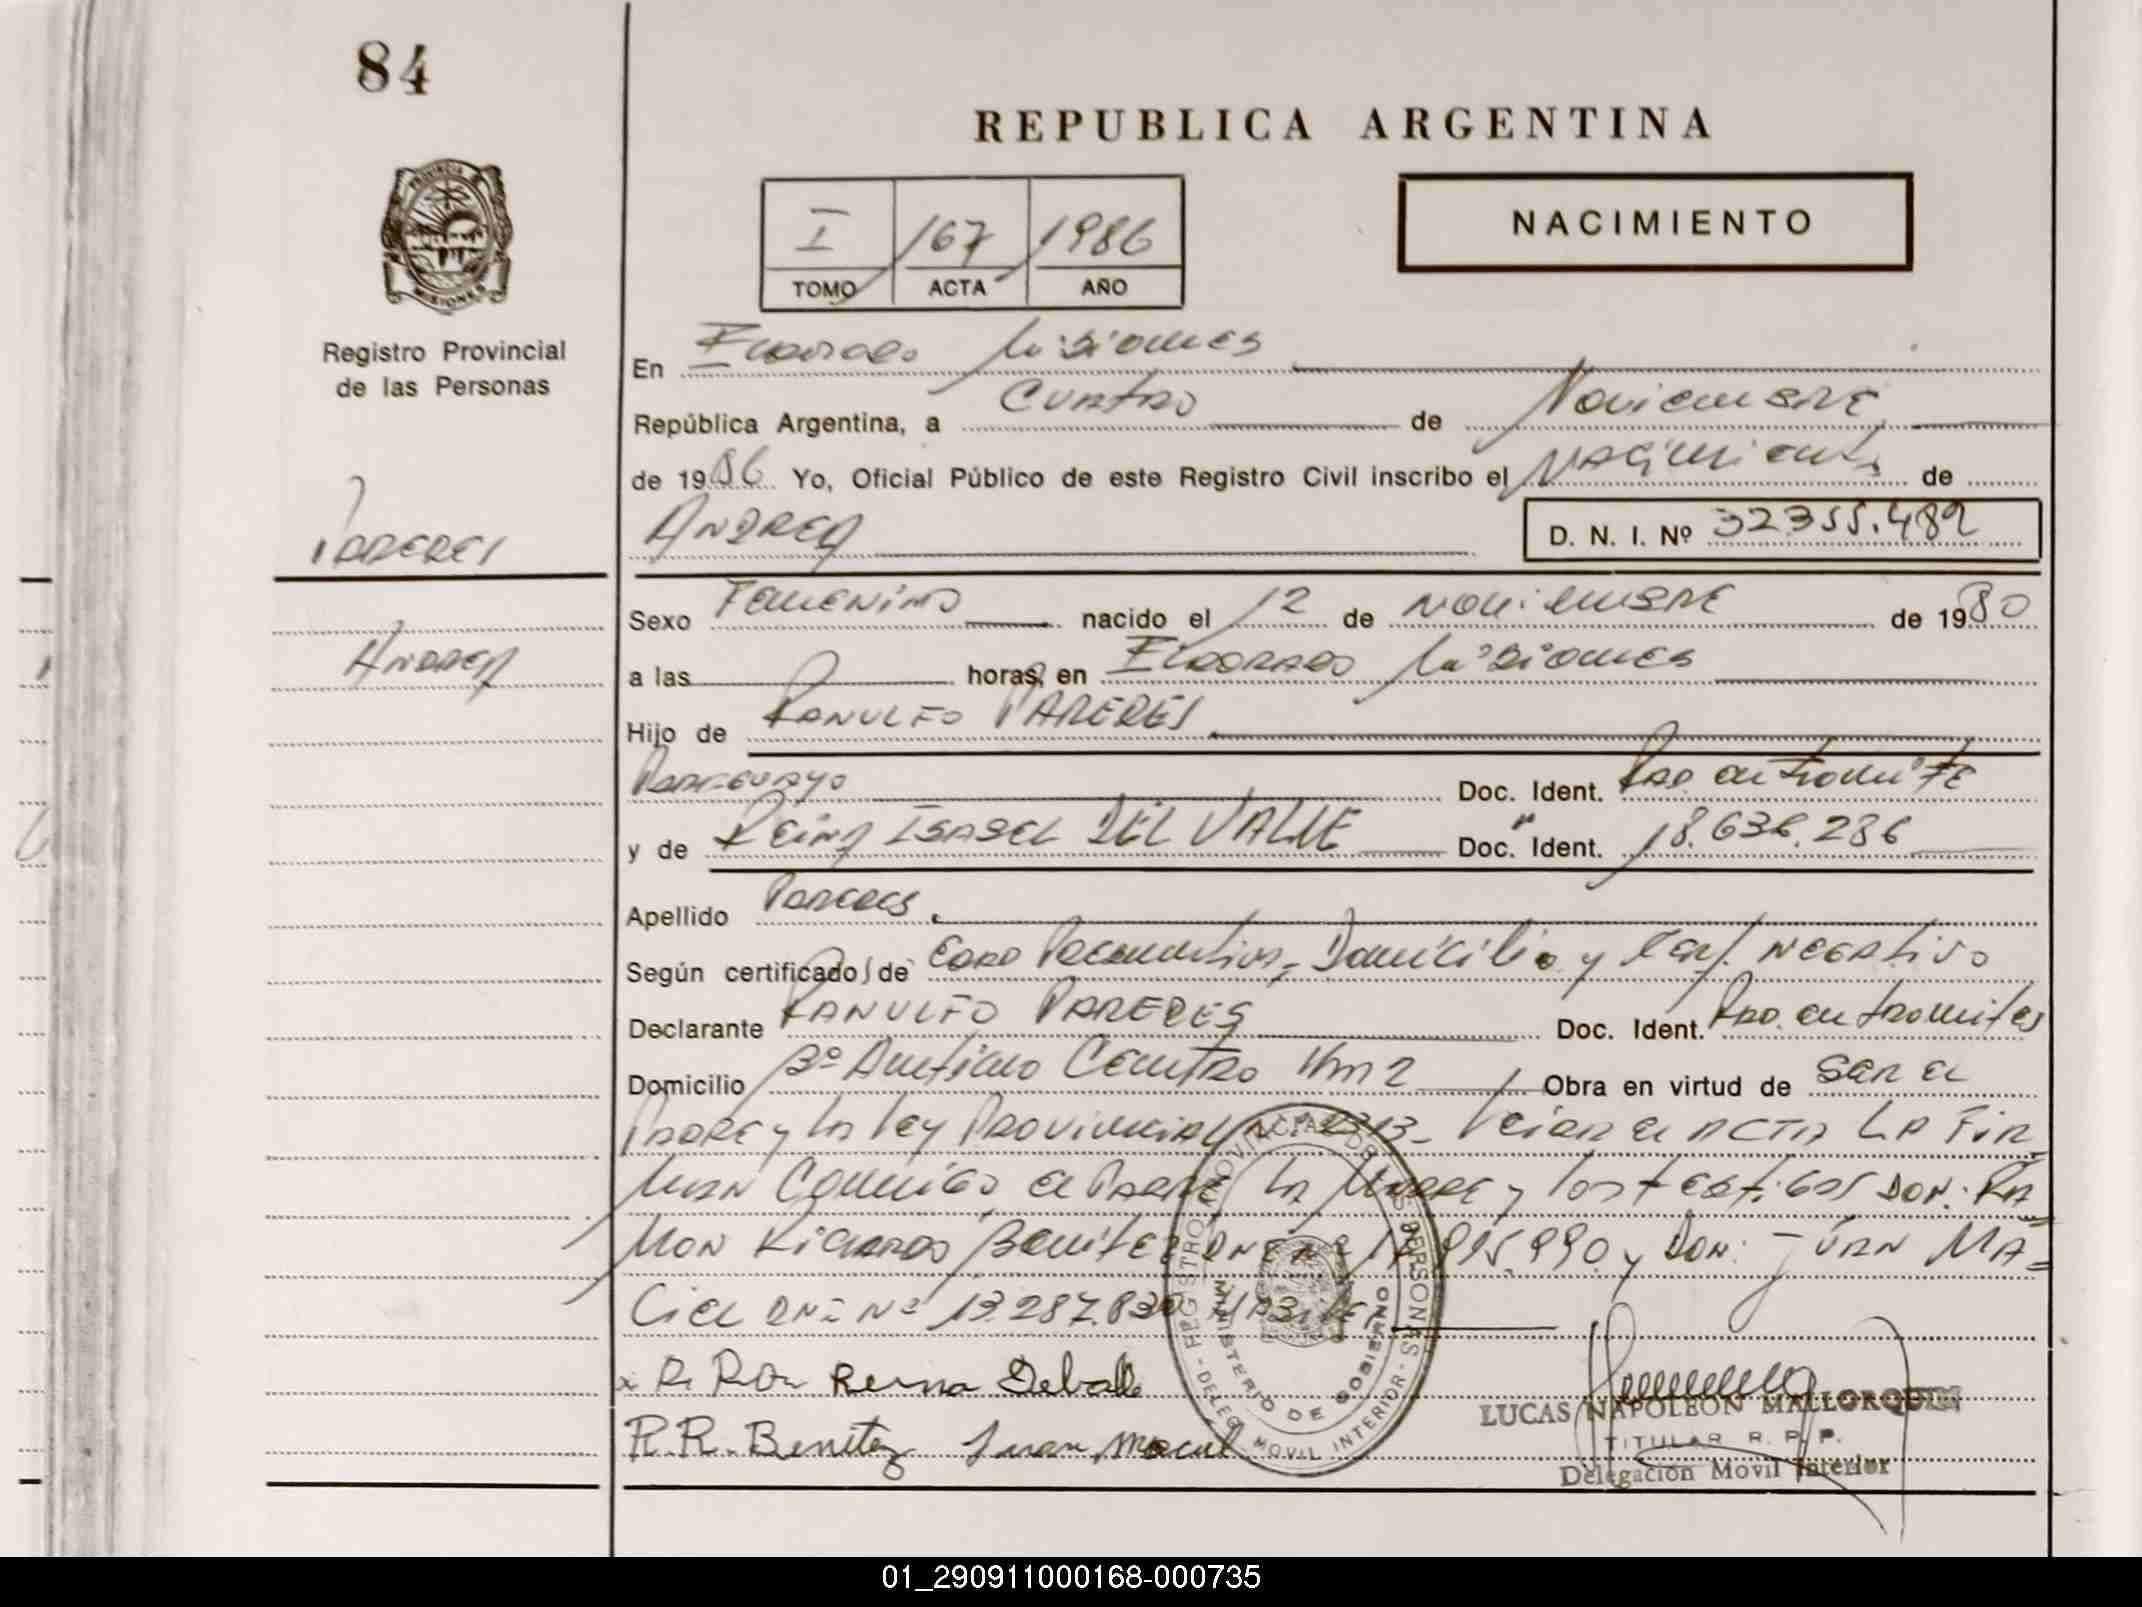 84
REPUBLICA ARGENTINA
NACIMIENTO
I 167 1986
TOMO ACTA AÑO
Registro Provincial
de las Personas
En Eldorado Misiones
República Argentina, a cuatro de Noviembre
de 1986 Yo, Oficial Público de este Registro Civil inscribo el Nacimiento de
PAREDES
ANDREA
D. N. I. Nº 32355.482
Andrea
Sexo Femenino nacido el 12 de noviembre de 1980
a las horas, en Eldorado Misiones
Hijo de RANULFO PAREDES
Paraguayo Doc. Ident. en tramite
y de Reina ISABEL DEL VALLE Doc. Ident. 18.636.286
Apellido Paredes
Según certificado de Domicilio y Cert. negativo
Declarante RANULFO PAREDES Doc. Ident. en tramites
Domicilio Centro Km 2 Obra en virtud de ser el
Padre y la ley Provincial 2313- Leida el acta LA FIR
man conmigo el Padre LA Madre y los testigos DON: RA=
MON Ricardo Benitez DNI Nº 995.990 y DON: JUAN MA=
Ciel DNI Nº 13.287.830
x R. Reina Deballe
R.R. Benitez Juan Maciel
REGISTRO PROVINCIAL DE LAS PERSONAS
MINISTERIO DE GOBIERNO
- DELEG. MOVIL INTERIOR -
LUCAS NAPOLEON MALLORQUIN
TITULAR R. P. P.
Delegación Movil Interior
PROVINCIA DE
MISIONES
01_290911000168-000735